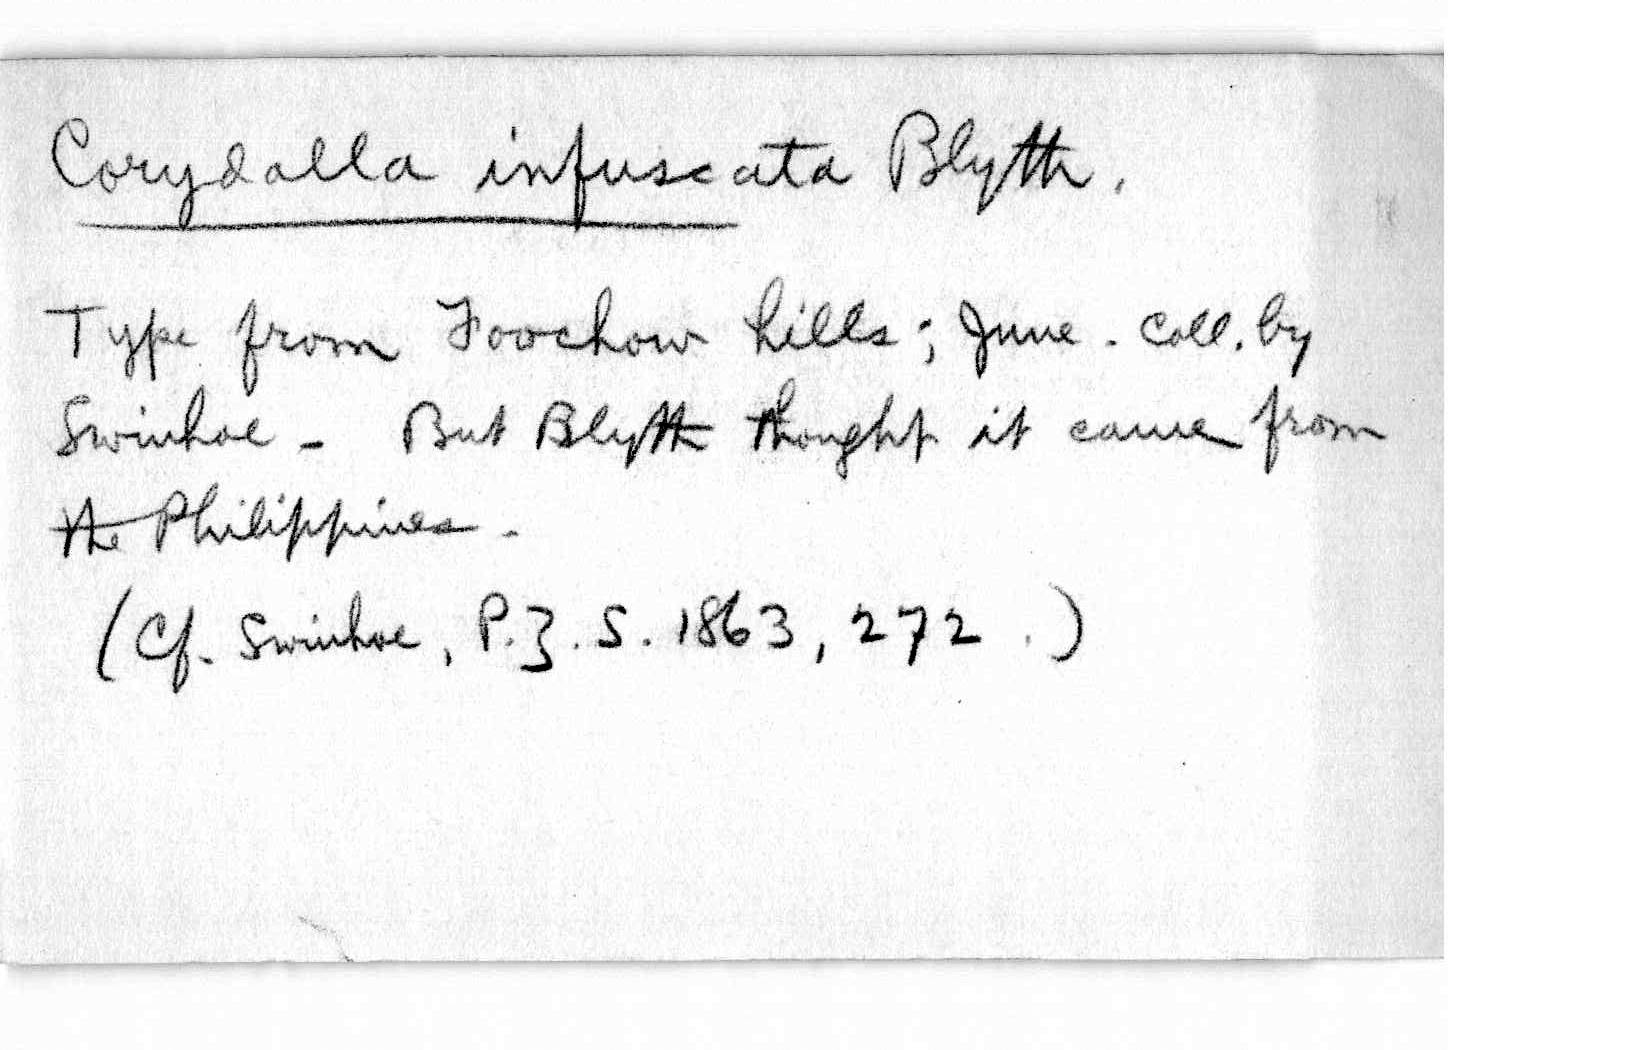 Corydalla infuscata Blyth.
Type from Foochow hills; June. Coll. by
Swinhoe - But Blyth thought it came from
the Philippines.
(Cf. Swinhoe, P.Z.S. 1863, 272.)